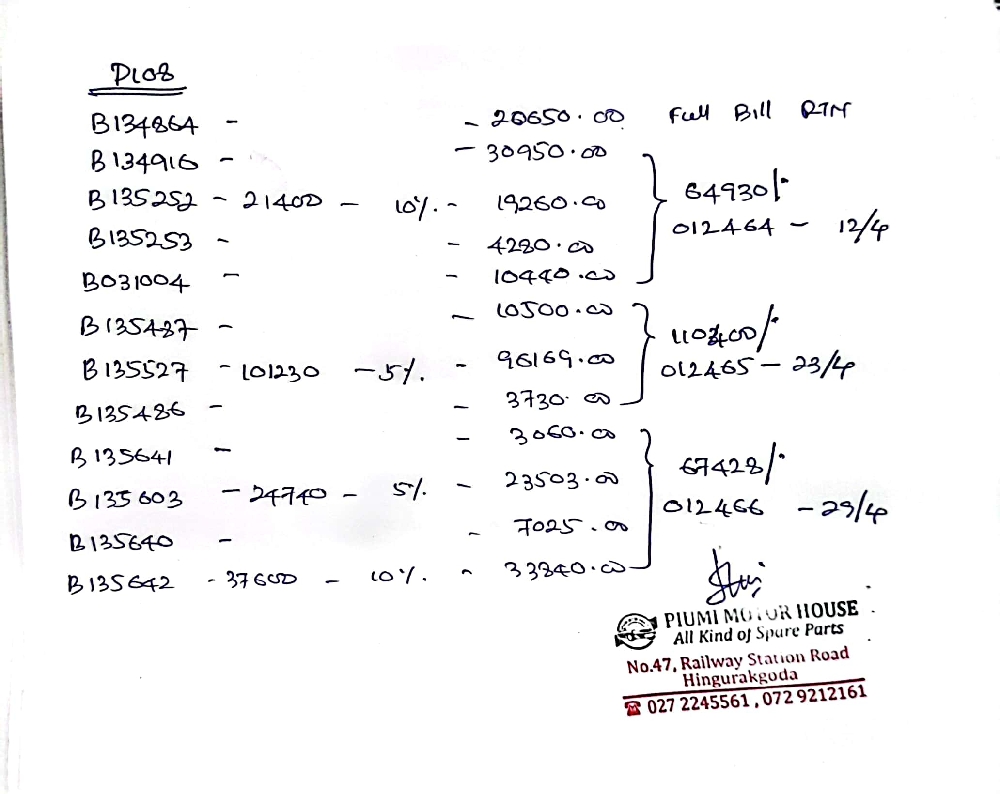 DL08
B134864 - - 20650.00 Full Bill RTN
B134916 - - 30950.00
B135252 - 21400 - 10% - 19260.00 64930/-
B135253 - - 4280.00 012464 - 12/4
B031004 - - 10440.00
B135487 - - 10500.00 110400/-
B135527 - 101230 - 5% - 96169.00 012465 - 23/4
B135486 - - 3730.00
B135641 - - 3060.00
B135603 - 24740 - 5% - 23503.00 67428/-
B135640 - - 7025.00 012466 - 29/4
B135642 - 37600 - 10% - 33840.00
PIUMI MOTOR HOUSE
All Kind of Spare Parts
No.47, Railway Station Road
Hingurakgoda
☎ 027 2245561, 072 9212161